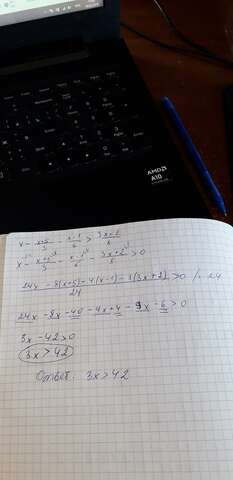 AMD
A10
x - \frac{x+5}{3} - \frac{x-1}{6} > \frac{3x+2}{8}
x - \frac{x+5}{3} - \frac{x-1}{6} - \frac{3x+2}{8} > 0
\frac{24x - 8(x+5) - 4(x-1) - 3(3x+2)}{24} > 0 / · 24
24x - 8x - 40 - 4x + 4 - 9x - 6 > 0
3x - 42 > 0
3x > 42
Ответ: 3x > 42